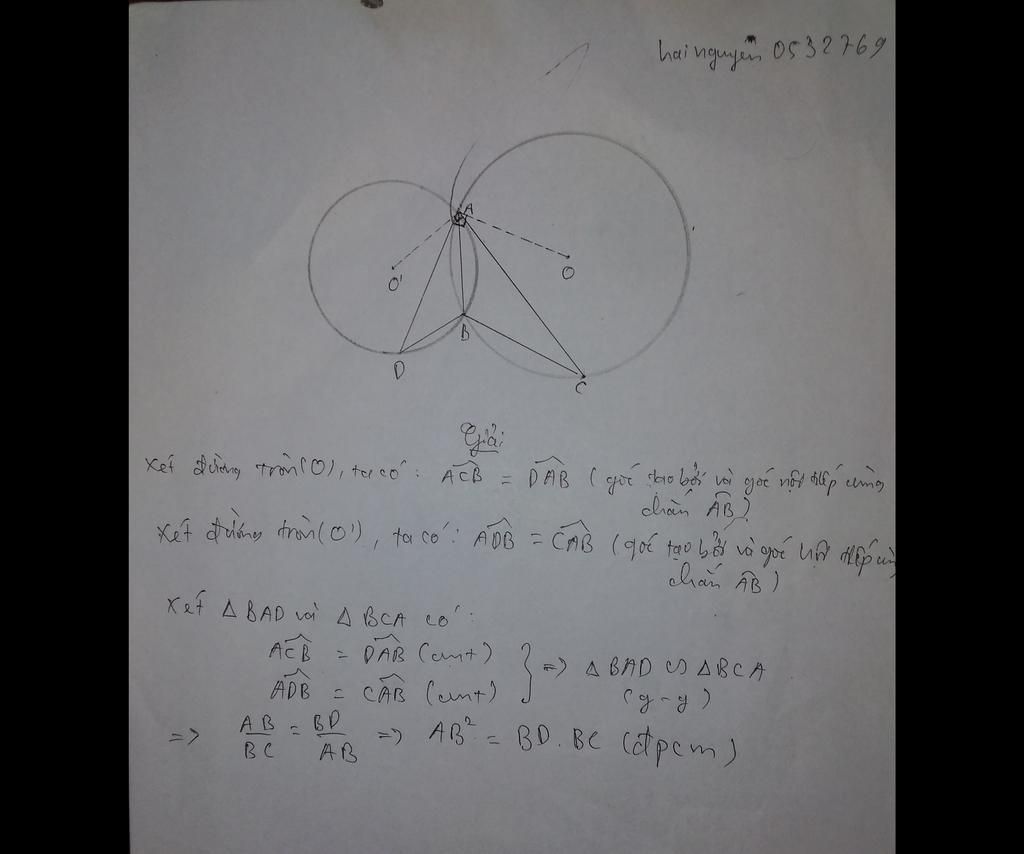 hainguyễn 0532769
A
O'
O
B
D
C
Giải
Xét đường tròn(O), ta có: ACB = DAB (góc tạo bởi và góc nội tiếp cùng
chắn AB)
Xét đường tròn(O'), ta có: ADB = CAB (góc tạo bởi và góc nội tiếp
chắn AB)
Xét △BAD và △BCA có:
ACB = DAB (cmt)
ADB = CAB (cmt)
} => △BAD ∽ △BCA
(g-g)
=> AB/BC = BD/AB => AB² = BD.BC (đpcm)